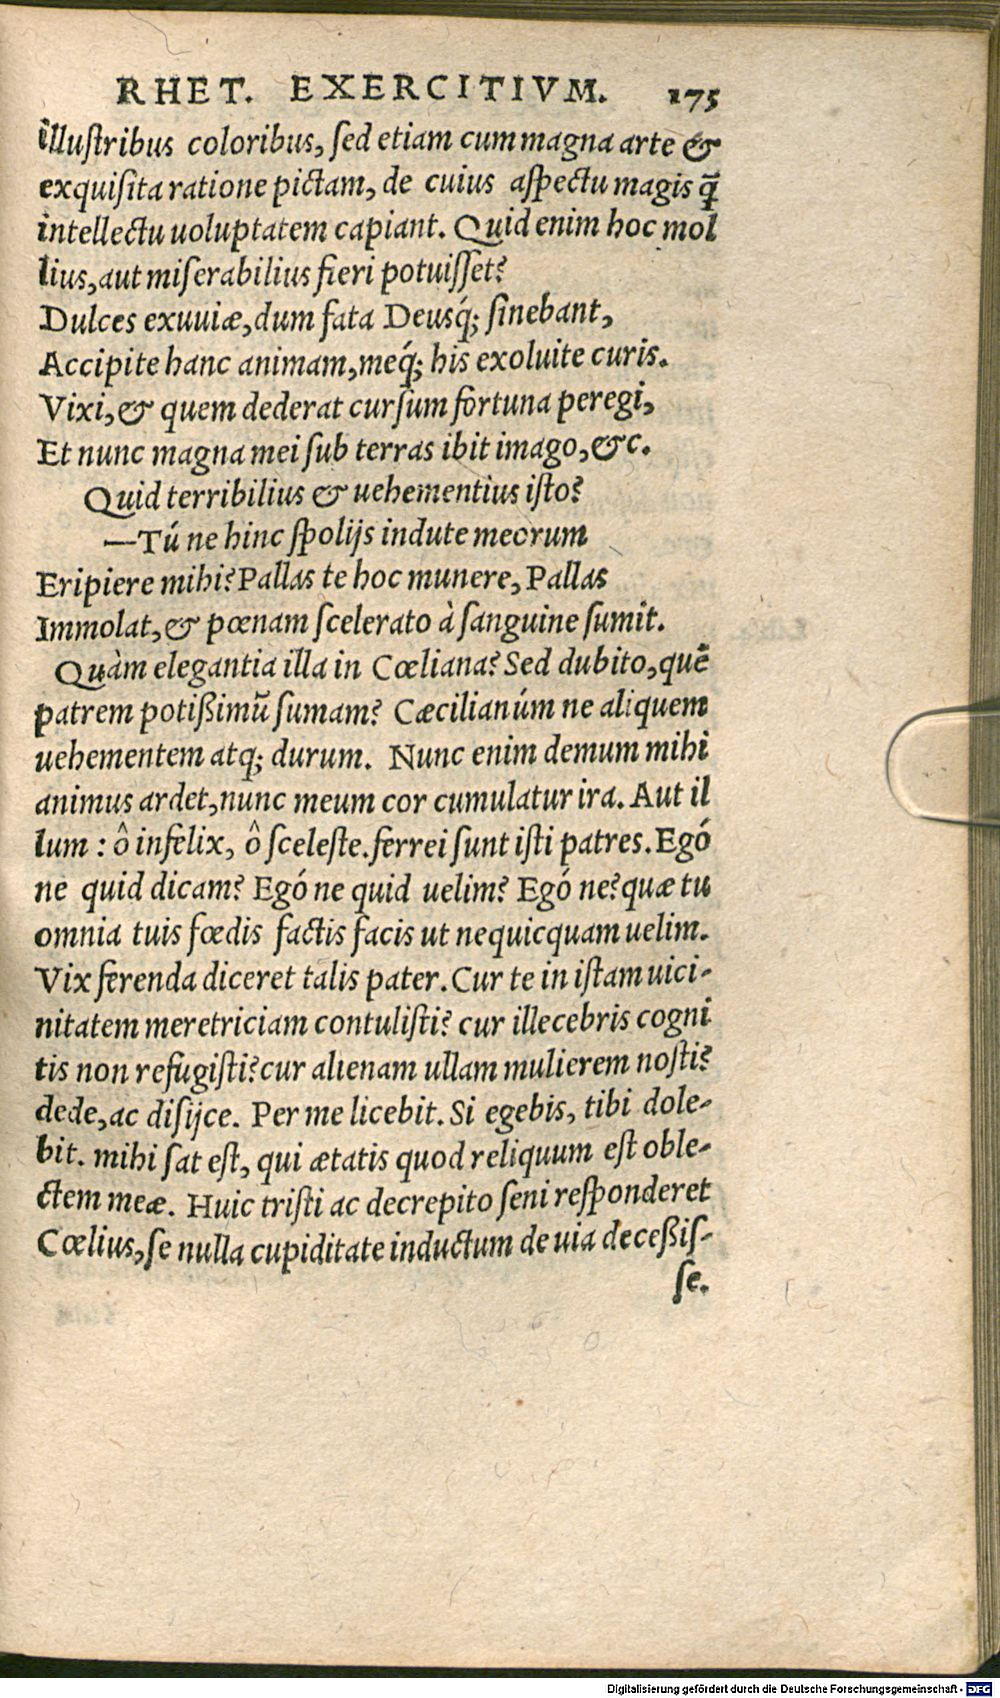 RHET. EXERCITIVM. 175
illustribus coloribus, sed etiam cum magna arte &
exquisita ratione pictam, de cuius aspectu magis q̃
intellectu uoluptatem capiant. Quid enim hoc mol
lius, aut miserabilius fieri potuisset?
Dulces exuuiæ, dum fata Deusq́; sinebant,
Accipite hanc animam, meq́; his exoluite curis.
Vixi, & quem dederat cursum fortuna peregi,
Et nunc magna mei sub terras ibit imago, &c.
Quid terribilius & uehementius isto?
—Tú ne hinc spolijs indute meorum
Eripiere mihi? Pallas te hoc munere, Pallas
Immolat, & pœnam scelerato à sanguine sumit.
Quàm elegantia illa in Cœliana? Sed dubito, quẽ
patrem potißimũ sumam? Cæcilianúm ne aliquem
uehementem atq; durum. Nunc enim demum mihi
animus ardet, nunc meum cor cumulatur ira. Aut il
lum : ô infelix, ô sceleste. ferrei sunt isti patres. Egó
ne quid dicam? Egó ne quid uelim? Egó ne? quæ tu
omnia tuis fœdis factis facis ut nequicquam uelim.
Vix ferenda diceret talis pater. Cur te in istam uici-
nitatem meretriciam contulisti? cur illecebris cogni
tis non refugisti? cur alienam ullam mulierem nosti?
dede, ac disijce. Per me licebit. Si egebis, tibi dole-
bit. mihi sat est, qui ætatis quod reliquum est oble-
ctem meæ. Huic tristi ac decrepito seni responderet
Cœlius, se nulla cupiditate inductum de uia deceßis-
se.
Digitalisierung gefördert durch die Deutsche Forschungsgemeinschaft - DFG